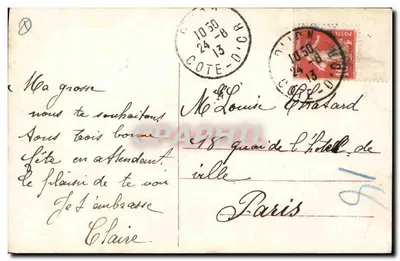 DIJON
10 30
24 - 8
13
COTE-D'OR
DIJON
10 30
24 - 8
13
COTE-D'OR
POSTES
Ma grosse
nous te souhaitons
tous trois bonne
fête en attendant
le plaisir de te voir
Je t'embrasse
Claire.
Mlle Louise Chatard
18 quai de l'hotel de
ville
Paris
16